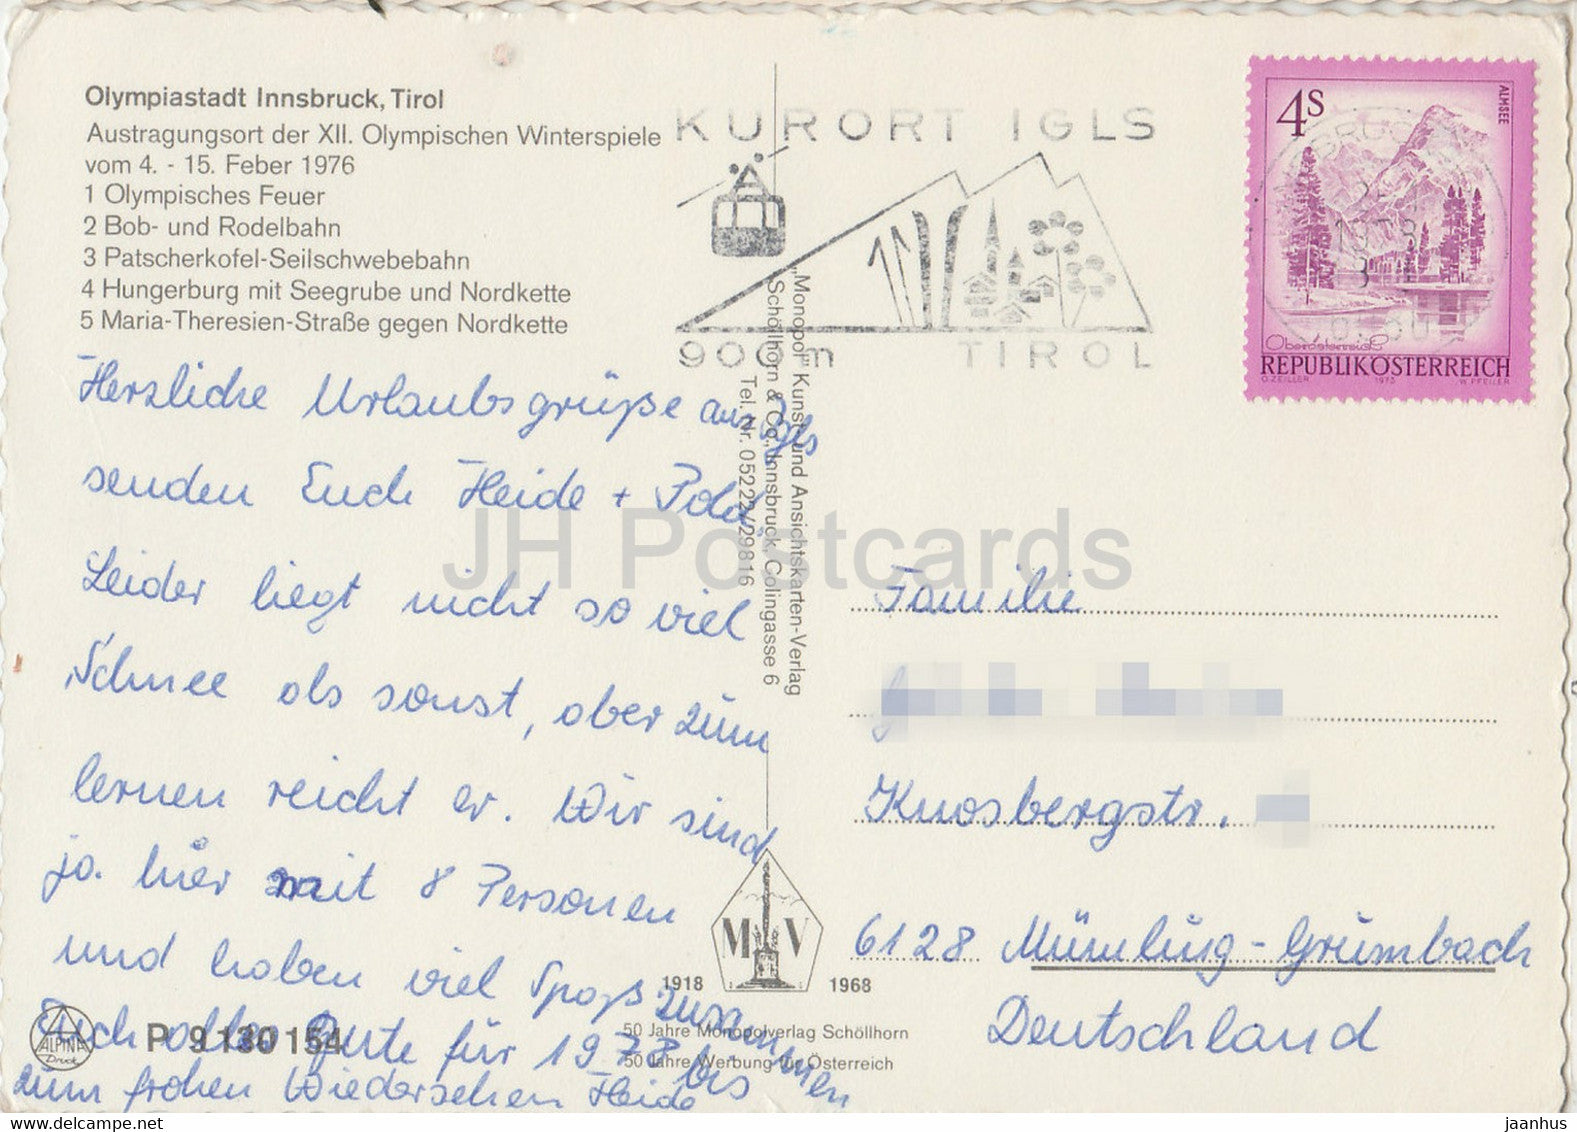 Olympiastadt Innsbruck, Tirol
Austragungsort der XII. Olympischen Winterspiele
vom 4. - 15. Feber 1976
1 Olympisches Feuer
2 Bob- und Rodelbahn
3 Patscherkofel-Seilschwebebahn
4 Hungerburg mit Seegrube und Nordkette
5 Maria-Theresien-Straße gegen Nordkette
Herzliche Urlaubsgrüße aus Igls
senden Euch Heide + Poldi
Leider liegt nicht so viel
Schnee als sonst, aber zum
lernen reicht er. Wir sind
ja hier mit 8 Personen
und haben viel Spaß zusammen
Euch alles Gute für 1978 bis
zum frohen Wiedersehen Heide
ALPINA
Druck
P 9130 154
„Monopol" Kunst und Ansichtskarten-Verlag
Schöllhorn & Co., Innsbruck, Colingasse 6
Tel. Nr. 05222/29816
M V
1918 1968
50 Jahre Monopolverlag Schöllhorn
50 Jahre Werbung für Österreich
KURORT IGLS
900 m TIROL
4S
ALMSEE
1978
Oberösterreich
REPUBLIK ÖSTERREICH
O. ZEILLER 1973 W. PFEILER
Familie
Knosbergstr.
6128 Mümling-Grumbach
Deutschland
JH Postcards
delcampe.net
jaanhus